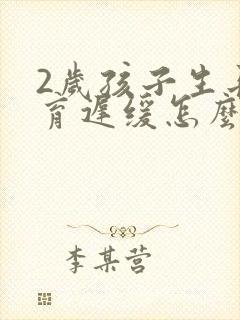 2歲孩子生長
育遲緩怎麼
李某营